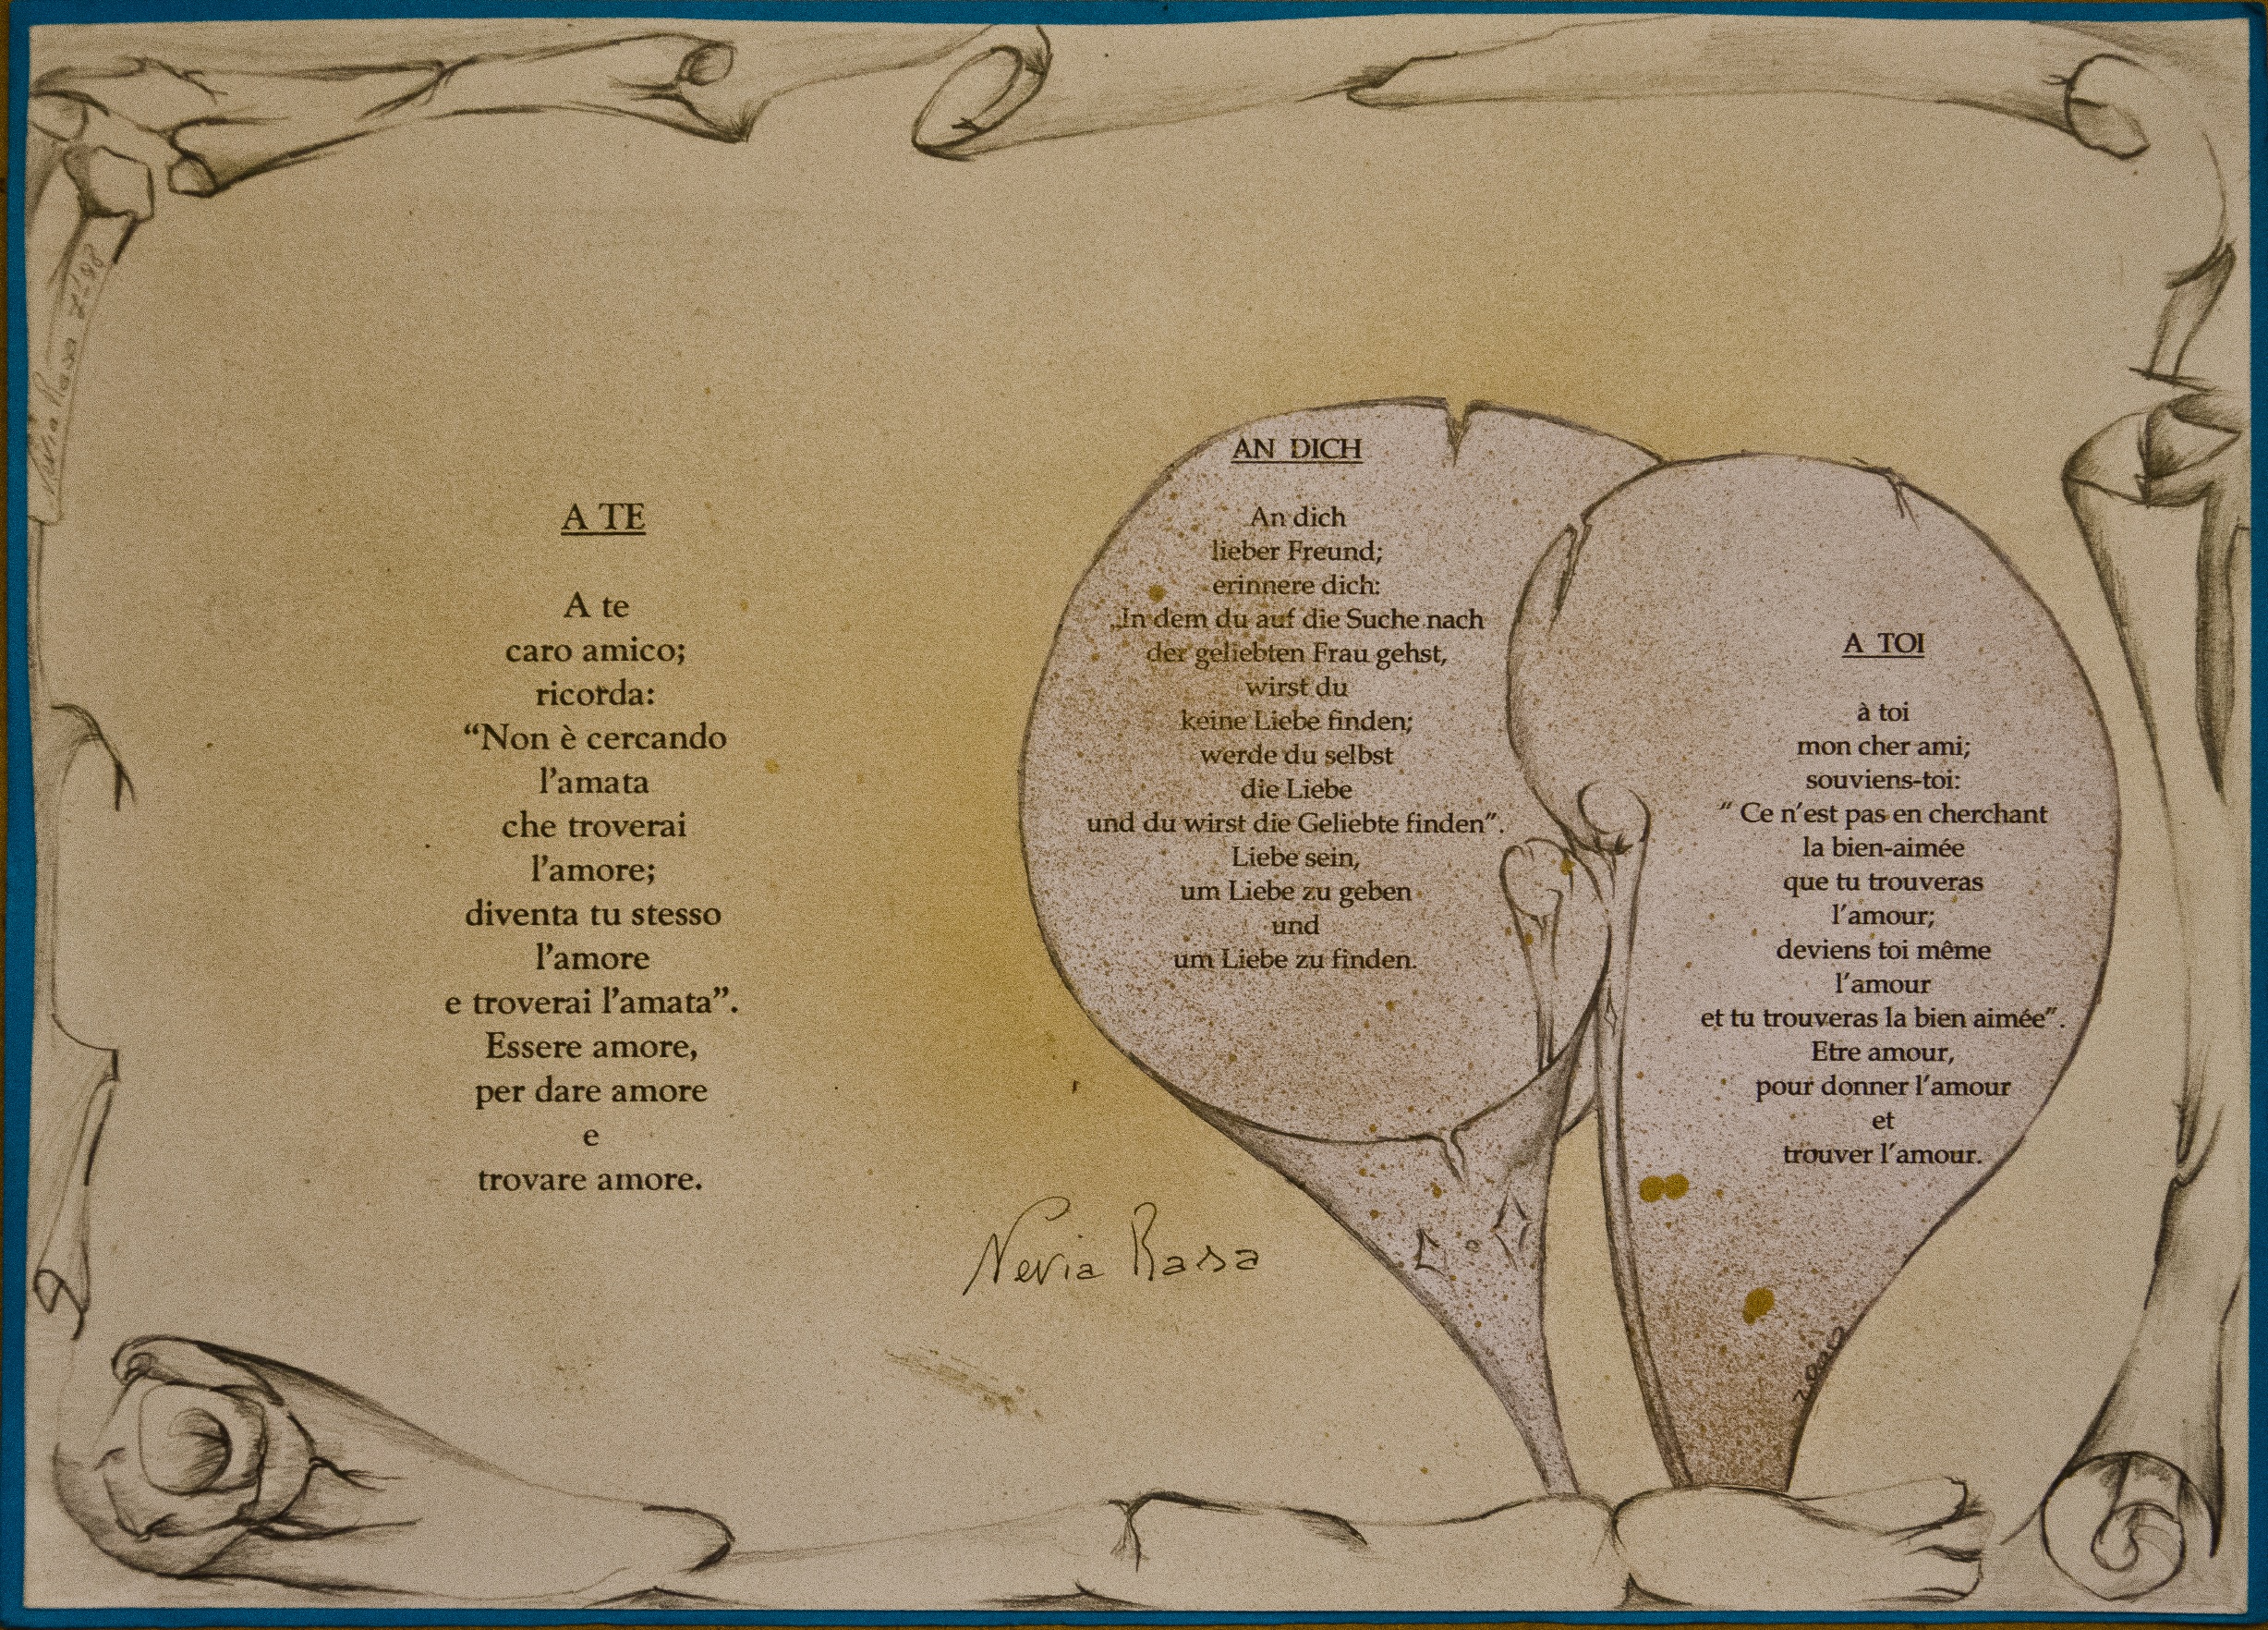 A TE
A te
caro amico;
ricorda:
“Non è cercando
l’amata
che troverai
l’amore;
diventa tu stesso
l’amore
e troverai l’amata”.
Essere amore,
per dare amore
e
trovare amore.
AN DICH
An dich
lieber Freund;
erinnere dich:
„In dem du auf die Suche nach
der geliebten Frau gehst,
wirst du
keine Liebe finden;
werde du selbst
die Liebe
und du wirst die Geliebte finden”.
Liebe sein,
um Liebe zu geben
und
um Liebe zu finden.
A TOI
à toi
mon cher ami;
souviens-toi:
“ Ce n’est pas en cherchant
la bien-aimée
que tu trouveras
l’amour;
deviens toi même
l’amour
et tu trouveras la bien aimée”.
Etre amour,
pour donner l’amour
et
trouver l’amour.
Nevia Rasa